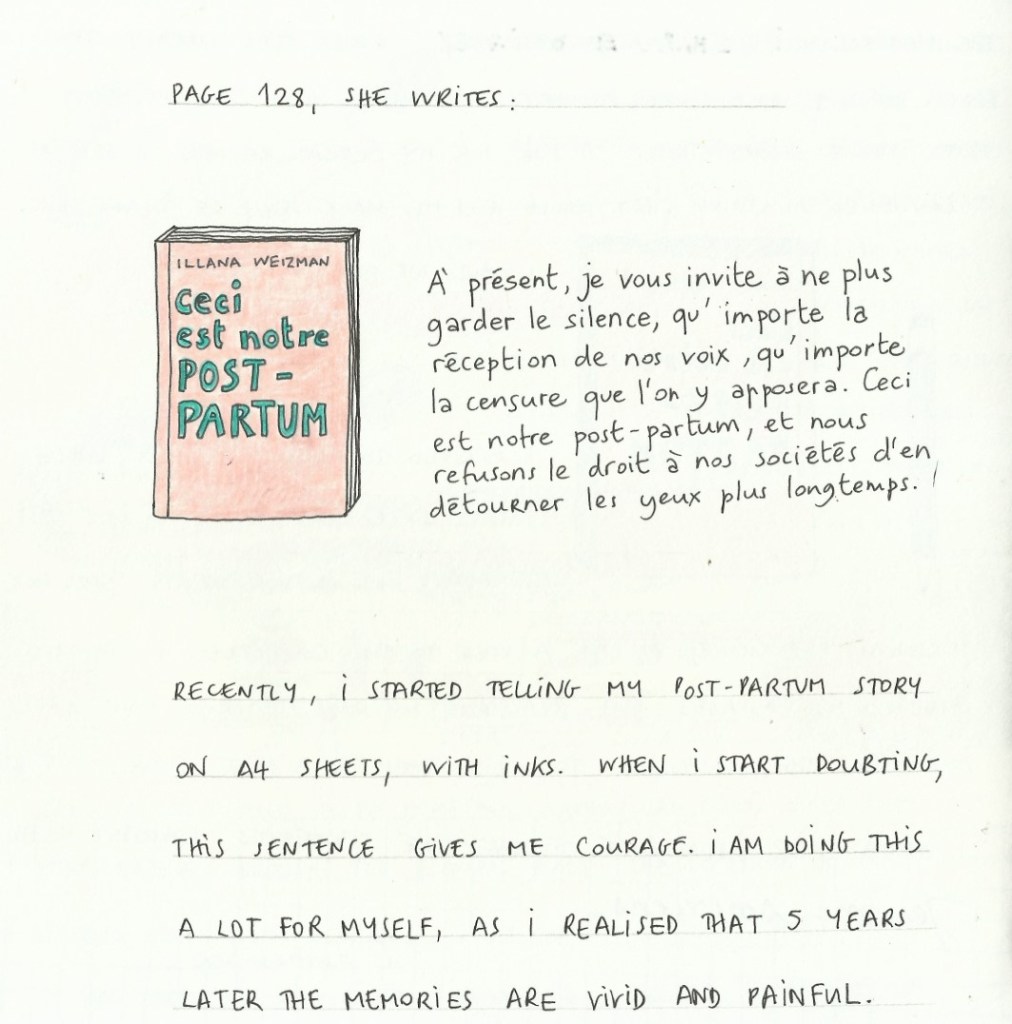 PAGE 128, SHE WRITES:
ILLANA WEIZMAN
Ceci
est notre
POST-
PARTUM
À présent, je vous invite à ne plus
garder le silence, qu'importe la
réception de nos voix, qu'importe
la censure que l'on y apposera. Ceci
est notre post-partum, et nous
refusons le droit à nos sociétés d'en
détourner les yeux plus longtemps.
RECENTLY, i STARTED TELLING MY POST-PARTUM STORY
ON A4 SHEETS, WITH iNKS. WHEN i START DOUBTING,
THiS SENTENCE GiVES ME COURAGE. i AM DOiNG THiS
A LOT FOR MYSELF, AS i REALISED THAT 5 YEARS
LATER THE MEMORiES ARE ViViD AND PAiNFUL.